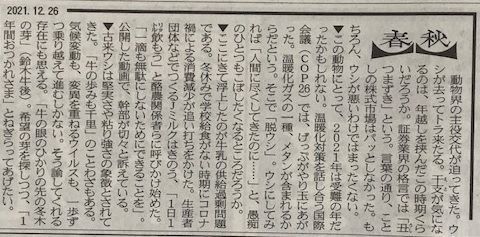 2021.12.26
春秋
動物界の主役交代が迫ってきた。ウ
シが去ってトラ来たる。干支が気にな
るのは、年越しを挟んだこの時期くら
いだろうか。証券業界の格言では「丑
つまずき」という。言葉の通り、こと
しの株式市場はパッとしなかった。も
ちろん、ウシが悪いわけではまったくない。
▼この動物にとって、2021年は受難の年だ
ったかもしれない。温暖化対策を話し合う国際
会議「COP26」では、げっぷがやり玉にあが
った。温暖化ガスの一種、メタンが含まれるか
らだという。そこで「脱ウシ」。ウシにしてみ
れば「人間に尽くしてきたのに……」と、愚痴
のひとつもこぼしたくなるところだろうか。
▼ここにきて浮上したのが牛乳の供給過剰問題
である。冬休みで学校給食がない時期にコロナ
禍による消費減が追い打ちをかけた。生産者
団体などでつくるJミルクはきのう、「1日1
L飲もう」と酪農関係者らに呼びかけ始めた。
「一滴も無駄にしないためにできることを」。
公開した動画で、幹部が切々と訴えている。
▼古来ウシは堅実さや粘り強さの象徴とされて
きた。「牛の歩みも千里」のことわざもある。
気候変動も、変異を重ねるウイルスも、一歩ず
つ乗り越えて進むしかない。そう諭してくれる
存在にも思える。「牛の眼のひかりの先の冬木
の芽」(鈴木牛後)。希望の芽を探しつつ、「1
年間おつかれさま」とねぎらってあげたい。